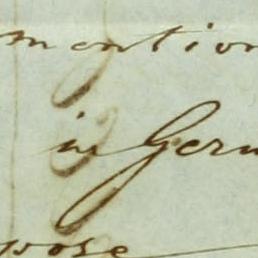 mention
in Germ
pose